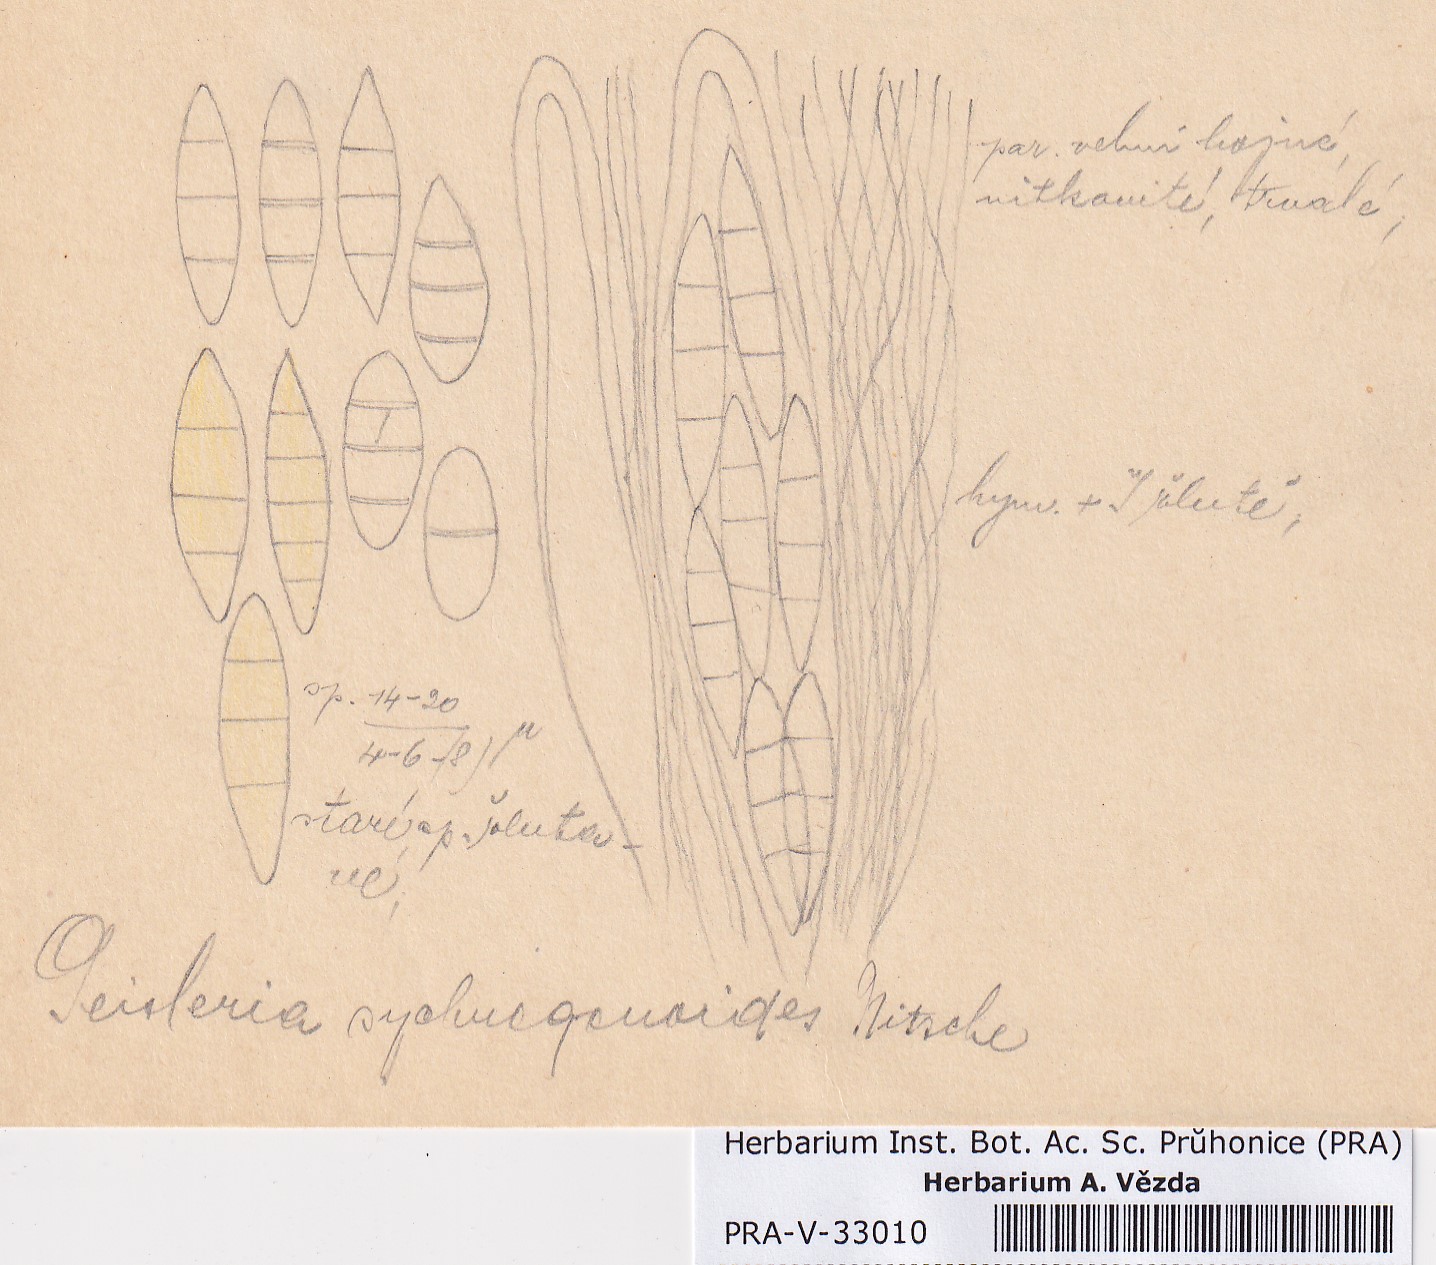 par. velmi hojné,
nitkovité, trvalé,
hym. + J žluté,
sp. 14-20
4-6-(8) μ
staré sp. žluta-
vé,
Geisleria sychnogonoides Nitsche
Herbarium Inst. Bot. Ac. Sc. Prŭhonice (PRA)
Herbarium A. Vězda
PRA-V-33010